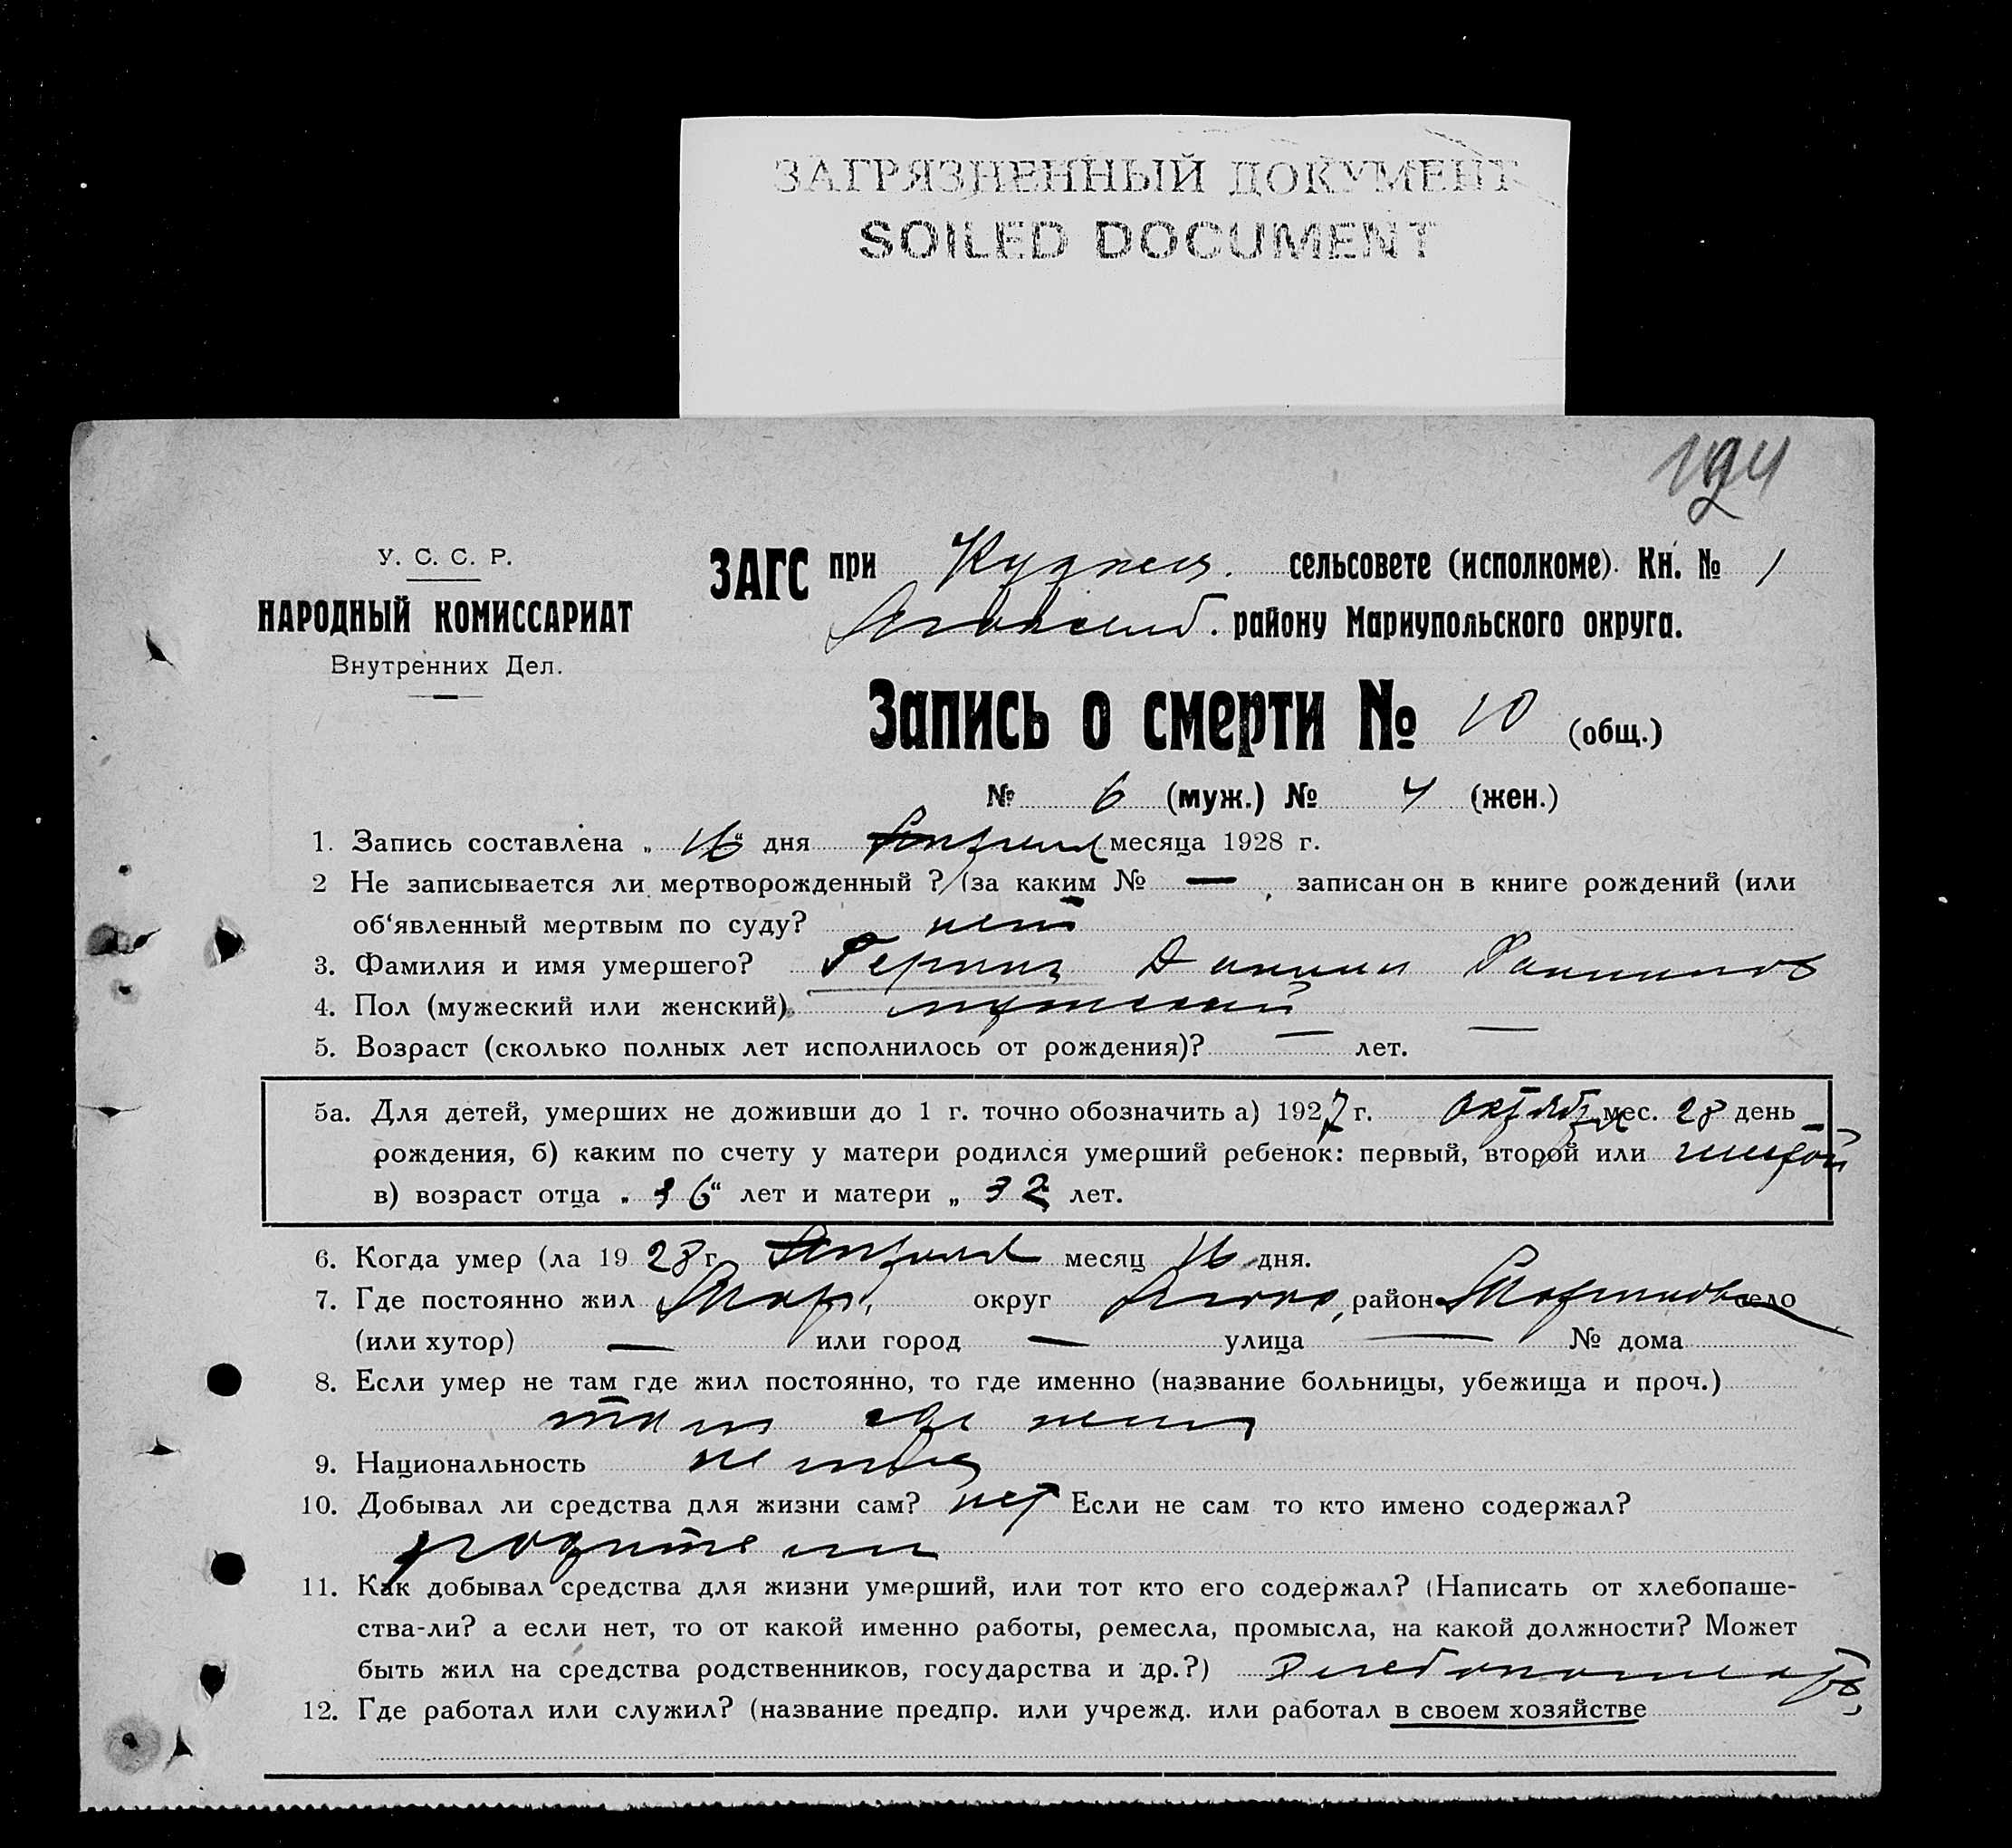 ЗАГРЯЗНЕННЫЙ ДОКУМЕНТ
SOILED DOCUMENT
194
У. С. С. Р.
НАРОДНЫЙ КОМИССАРИАТ
Внутренних Дел.
ЗАГС при сельсовете (исполкоме). Кн. № 1
району Мариупольского округа.
Запись о смерти № 10 (общ.)
№ 6 (муж.) № 4 (жен.)
1. Запись составлена „ 16 “ дня месяца 1928 г.
2 Не записывается ли мертворожденный ? (за каким № — , записан он в книге рождений (или
об‘явленный мертвым по суду? нет
3. Фамилия и имя умершего? Даниил
4. Пол (мужеский или женский). мужский
5. Возраст (сколько полных лет исполнилось от рождения)? — лет.
5а. Для детей, умерших не доживши до 1 г. точно обозначить а) 1927 г. октября мес. 28 день
рождения, б) каким по счету у матери родился умерший ребенок: первый, второй или шестой
в) возраст отца „ 36 “ лет и матери „ 32 лет.
6. Когда умер (ла 19 28 г. месяц 16 дня.
7. Где постоянно жил Мар. округ район село
(или хутор) — или город — улица — № дома
8. Если умер не там где жил постоянно, то где именно (название больницы, убежища и проч.)
там где жил
9. Национальность немец
10. Добывал ли средства для жизни сам? нет Если не сам то кто имено содержал?
родители
11. Как добывал средства для жизни умерший, или тот кто его содержал? (Написать от хлебопаше-
ства-ли? а если нет, то от какой именно работы, ремесла, промысла, на какой должности? Может
быть жил на средства родственников, государства и др.?)
12. Где работал или служил? (название предпр. или учрежд. или работал в своем хозяйстве